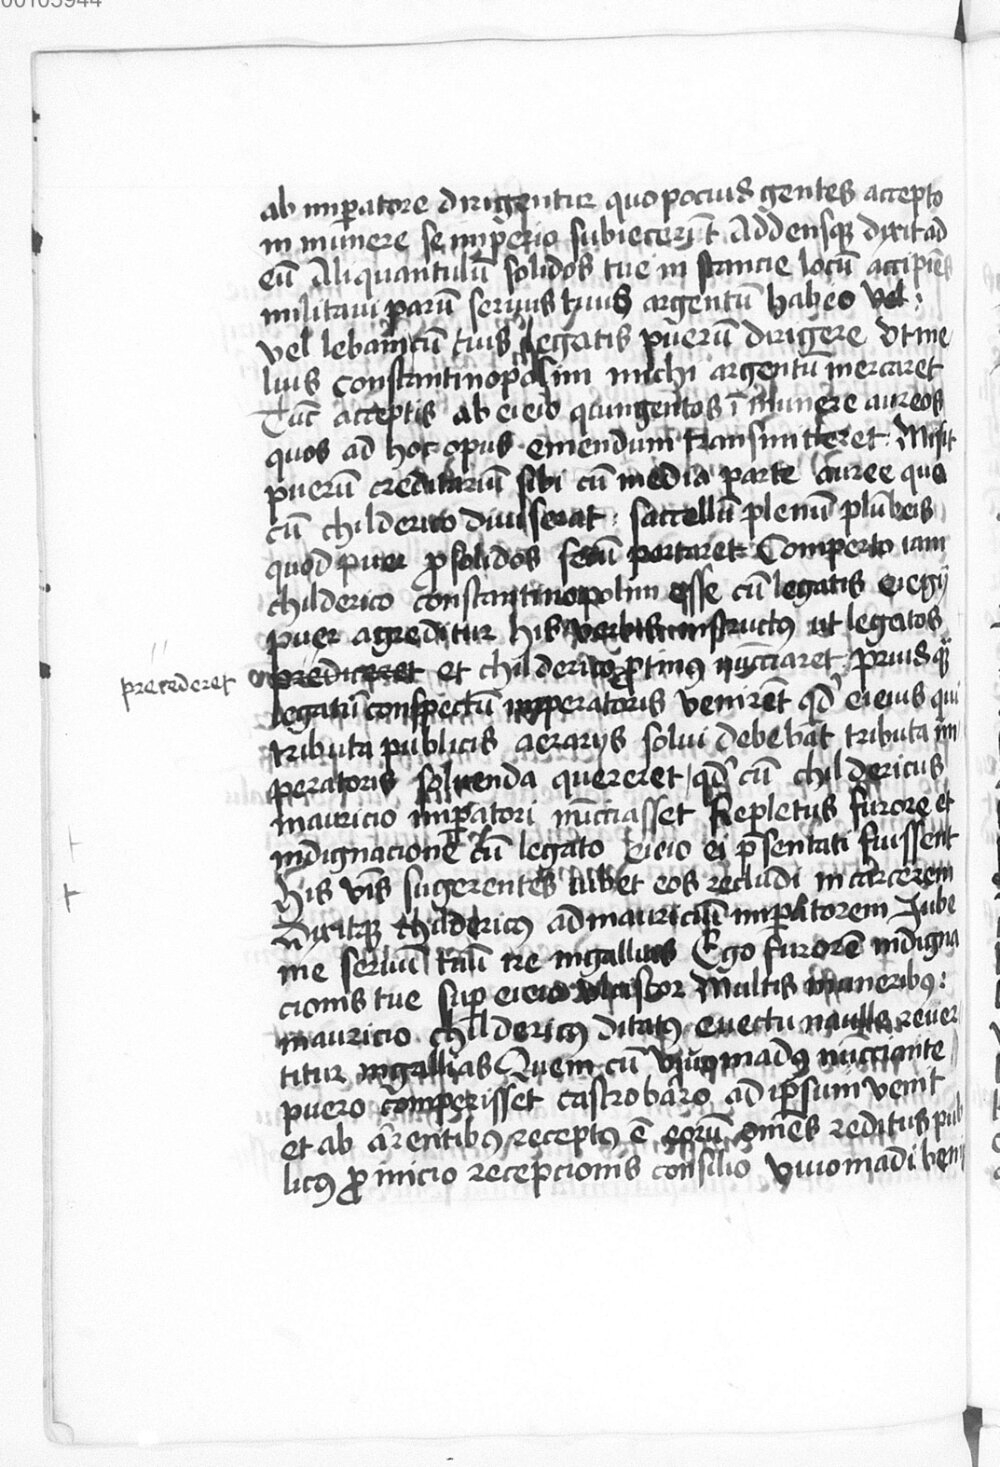 00105944
ab imp̲atore dirigentur quo pocius gentes accepto
in munere se imp̲erio subiecerūt Addensqꝫ dixit ad
eū Aliquantulū solidos tue in stancie locū accipiēs
militaui parū seruus tuus argentū habeo vel :
vel lebam cū tuis legatis puerū dirigere vt me
lius constantinopolim michi argentū mercaret
Tūc acceptis ab eieio quingentos ī munere aureos
quos ad hoc opus emendum transmitteret Misit
puerū creditariū sibi cū media parte auree quā
cū childerico diuiserat : saccellū plenū plūbeis
quod puer ꝓ solidos secū portaret : Comperto iam
childerico constantinopolim esse cū legatis eiegij
puer agreditur his verbis instructꝰ ut legatos
precederet
et childerico ꝓtinꝰ nūcciaret priusqᷓ
legatū conspectū imperatoris venirēt qd̛ eieius qui
tributa publicis aerarijs solui debebāt tributa im
peratoris soluenda quereret qd̛ cū childericus
mauricio imp̲atori nūcciasset Repletus furore et
indignacione cū legato eieio ei p̄sentati fuissent
His v̄is sugerentes iubet eos recludi in carcerem
Dixitqꝫ childericꝰ ad mauriciū imp̲atorem Jube
me seruū tuū ire in gallias Ego furorē indigna
cionis tue sup̲ eieio vlciscor Multis muneribꝰ :
mauricio childericꝰ ditatꝰ euectu nauale reuer
titur in gallias Quem cū viuomadꝰ nūcciante
puero cōmperisset castro baro ad ip̄sum venit
et ab arentibꝰ receptꝰ ē eorū omēs reditus pub
licꝰ ꝓ inicio recepcionis consilio viuomadi beni